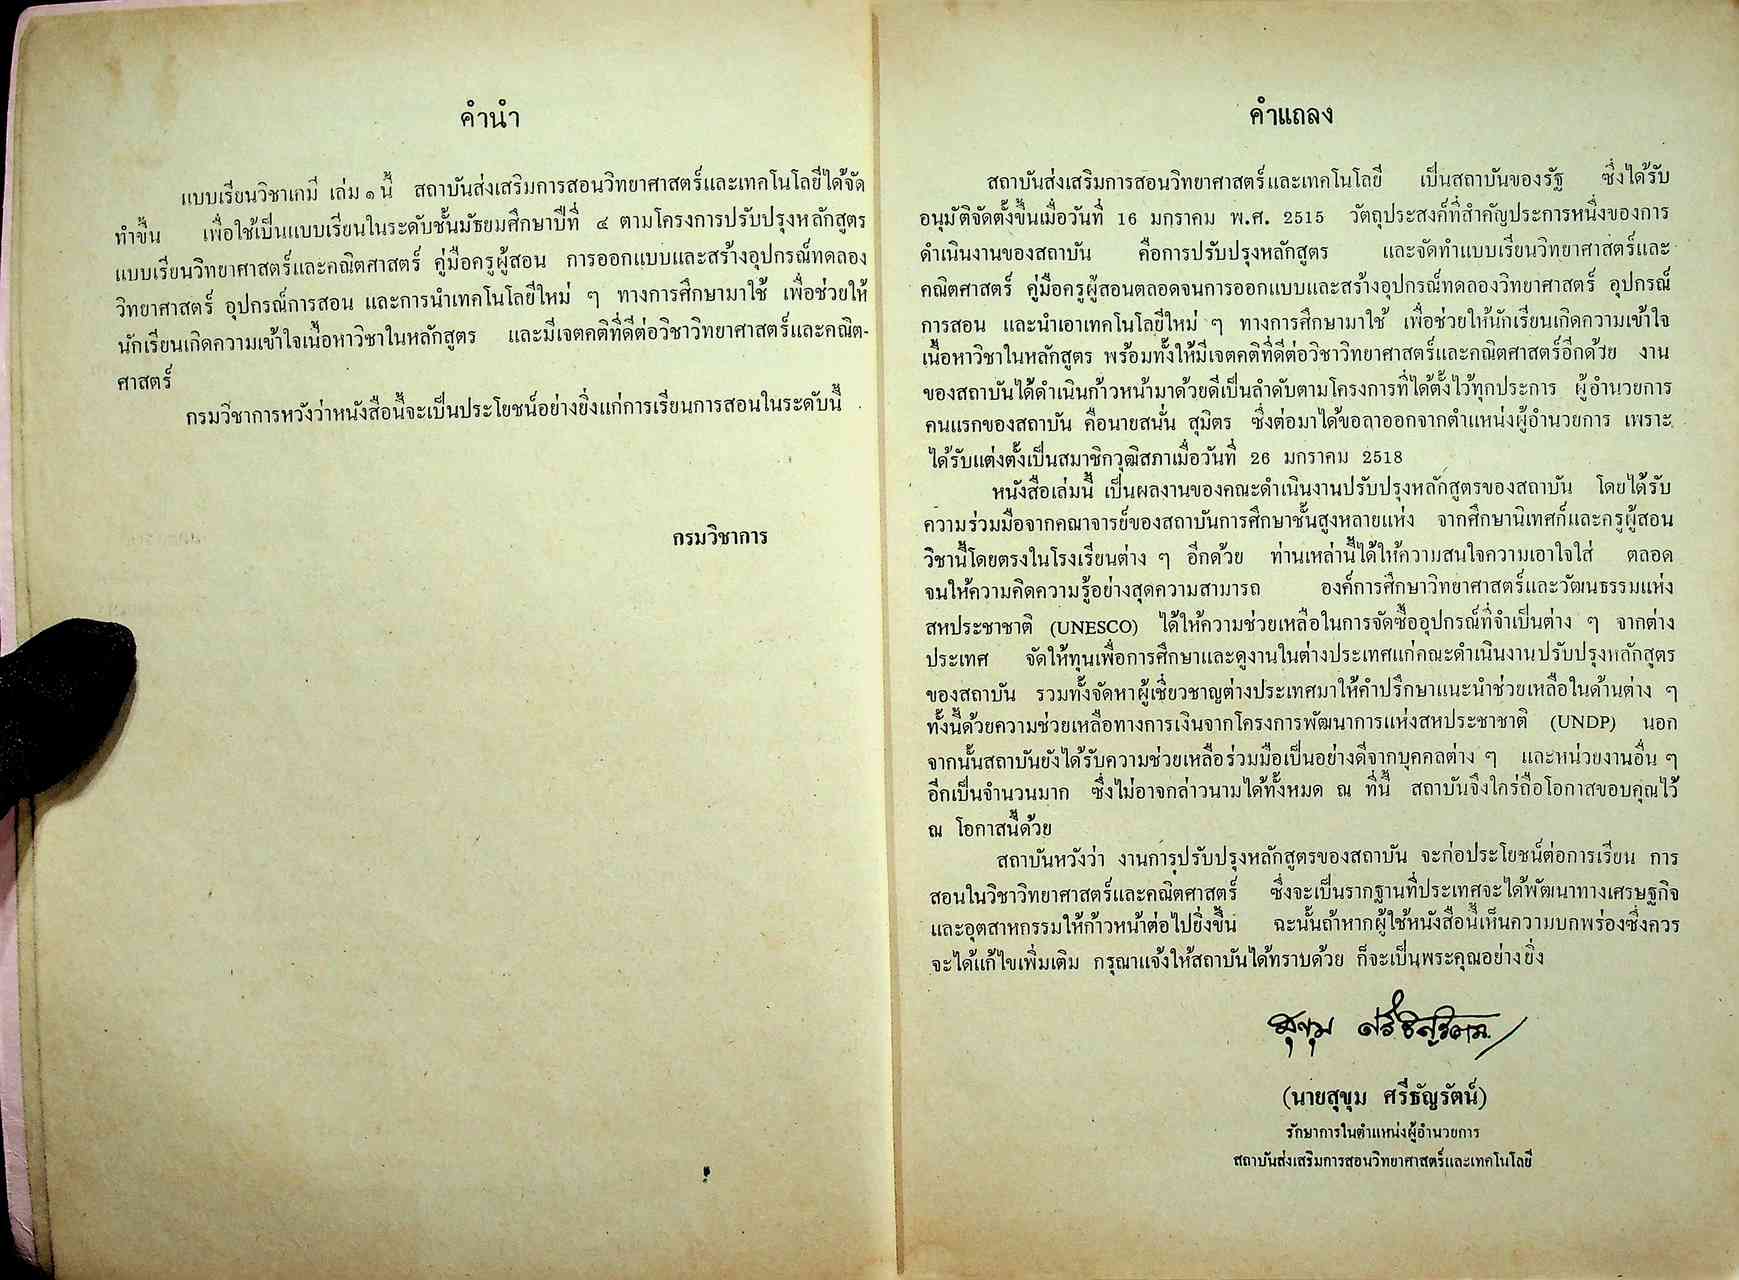 คำนำ
แบบเรียนวิชาเคมี เล่ม ๑ นี้ สถาบันส่งเสริมการสอนวิทยาศาสตร์และเทคโนโลยีได้จัด
ทำขึ้น เพื่อใช้เป็นแบบเรียนในระดับชั้นมัธยมศึกษาปีที่ ๔ ตามโครงการปรับปรุงหลักสูตร
แบบเรียนวิทยาศาสตร์และคณิตศาสตร์ คู่มือครูผู้สอน การออกแบบและสร้างอุปกรณ์ทดลอง
วิทยาศาสตร์ อุปกรณ์การสอน และการนำเทคโนโลยีใหม่ ๆ ทางการศึกษามาใช้ เพื่อช่วยให้
นักเรียนเกิดความเข้าใจเนื้อหาวิชาในหลักสูตร และมีเจตคติที่ดีต่อวิชาวิทยาศาสตร์และคณิต-
ศาสตร์
กรมวิชาการหวังว่าหนังสือนี้จะเป็นประโยชน์อย่างยิ่งแก่การเรียนการสอนในระดับนี้
กรมวิชาการ
คำแถลง
สถาบันส่งเสริมการสอนวิทยาศาสตร์และเทคโนโลยี เป็นสถาบันของรัฐ ซึ่งได้รับ
อนุมัติจัดตั้งขึ้นเมื่อวันที่ 16 มกราคม พ.ศ. 2515 วัตถุประสงค์ที่สำคัญประการหนึ่งของการ
ดำเนินงานของสถาบัน คือการปรับปรุงหลักสูตร และจัดทำแบบเรียนวิทยาศาสตร์และ
คณิตศาสตร์ คู่มือครูผู้สอนตลอดจนการออกแบบและสร้างอุปกรณ์ทดลองวิทยาศาสตร์ อุปกรณ์
การสอน และนำเอาเทคโนโลยีใหม่ ๆ ทางการศึกษามาใช้ เพื่อช่วยให้นักเรียนเกิดความเข้าใจ
เนื้อหาวิชาในหลักสูตร พร้อมทั้งให้มีเจตคติที่ดีต่อวิชาวิทยาศาสตร์และคณิตศาสตร์อีกด้วย งาน
ของสถาบันได้ดำเนินก้าวหน้ามาด้วยดีเป็นลำดับตามโครงการที่ได้ตั้งไว้ทุกประการ ผู้อำนวยการ
คนแรกของสถาบัน คือนายสนั่น สุมิตร ซึ่งต่อมาได้ขอลาออกจากตำแหน่งผู้อำนวยการ เพราะ
ได้รับแต่งตั้งเป็นสมาชิกวุฒิสภาเมื่อวันที่ 26 มกราคม 2518
หนังสือเล่มนี้ เป็นผลงานของคณะดำเนินงานปรับปรุงหลักสูตรของสถาบัน โดยได้รับ
ความร่วมมือจากคณาจารย์ของสถาบันการศึกษาชั้นสูงหลายแห่ง จากศึกษานิเทศก์และครูผู้สอน
วิชานี้โดยตรงในโรงเรียนต่าง ๆ อีกด้วย ท่านเหล่านี้ได้ให้ความสนใจความเอาใจใส่ ตลอด
จนให้ความคิดความรู้อย่างสุดความสามารถ องค์การศึกษาวิทยาศาสตร์และวัฒนธรรมแห่ง
สหประชาชาติ (UNESCO) ได้ให้ความช่วยเหลือในการจัดซื้ออุปกรณ์ที่จำเป็นต่าง ๆ จากต่าง
ประเทศ จัดให้ทุนเพื่อการศึกษาและดูงานในต่างประเทศแก่คณะดำเนินงานปรับปรุงหลักสูตร
ของสถาบัน รวมทั้งจัดหาผู้เชี่ยวชาญต่างประเทศมาให้คำปรึกษาแนะนำช่วยเหลือในด้านต่าง ๆ
ทั้งนี้ด้วยความช่วยเหลือทางการเงินจากโครงการพัฒนาการแห่งสหประชาชาติ (UNDP) นอก
จากนั้นสถาบันยังได้รับความช่วยเหลือร่วมมือเป็นอย่างดีจากบุคคลต่าง ๆ และหน่วยงานอื่น ๆ
อีกเป็นจำนวนมาก ซึ่งไม่อาจกล่าวนามได้ทั้งหมด ณ ที่นี้ สถาบันจึงใคร่ถือโอกาสขอบคุณไว้
ณ โอกาสนี้ด้วย
สถาบันหวังว่า งานการปรับปรุงหลักสูตรของสถาบัน จะก่อประโยชน์ต่อการเรียน การ
สอนในวิชาวิทยาศาสตร์และคณิตศาสตร์ ซึ่งจะเป็นรากฐานที่ประเทศจะได้พัฒนาทางเศรษฐกิจ
และอุตสาหกรรมให้ก้าวหน้าต่อไปยิ่งขึ้น ฉะนั้นถ้าหากผู้ใช้หนังสือนี้เห็นความบกพร่องซึ่งควร
จะได้แก้ไขเพิ่มเติม กรุณาแจ้งให้สถาบันได้ทราบด้วย ก็จะเป็นพระคุณอย่างยิ่ง
สุขุม ศรีธัญรัตน์
(นายสุขุม ศรีธัญรัตน์)
รักษาการในตำแหน่งผู้อำนวยการ
สถาบันส่งเสริมการสอนวิทยาศาสตร์และเทคโนโลยี